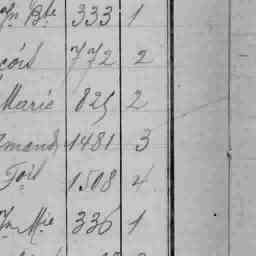 Jn Bte 333 1
çois 772 2
Marie 825 2
mond 1481 3
Fois 1508 4
Jn Mie 336 1